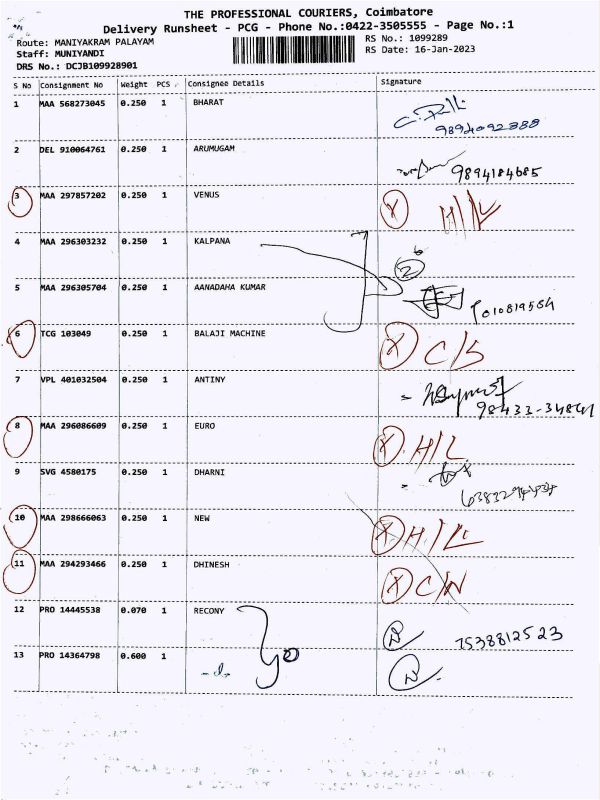 THE PROFESSIONAL COURIERS, Coimbatore
Delivery Runsheet - PCG - Phone No.:0422-3505555 - Page No.:1
Route: MANIYAKRAM PALAYAM
RS No.: 1099289
Staff: MUNIYANDI
RS Date: 16-Jan-2023
DRS No.: DCJB109928901
S No Consignment No Weight PCS Consignee Details Signature
1 MAA 568273045 0.250 1 BHARAT
9894092888
2 DEL 910064761 0.250 1 ARUMUGAM
9894184685
3 MAA 297857202 0.250 1 VENUS X H/L
4 MAA 296303232 0.250 1 KALPANA
2
5 MAA 296305704 0.250 1 AANADAHA KUMAR
6 TCG 103049 0.250 1 BALAJI MACHINE X C/S
7 VPL 401032504 0.250 1 ANTINY
98433-34841
8 MAA 296086609 0.250 1 EURO X H/L
9 SVG 4580175 0.250 1 DHARNI
10 MAA 298666063 0.250 1 NEW X H/L
11 MAA 294293466 0.250 1 DHINESH X C/N
12 PRO 14445538 0.070 1 RECONY
7538812523
13 PRO 14364798 0.600 1